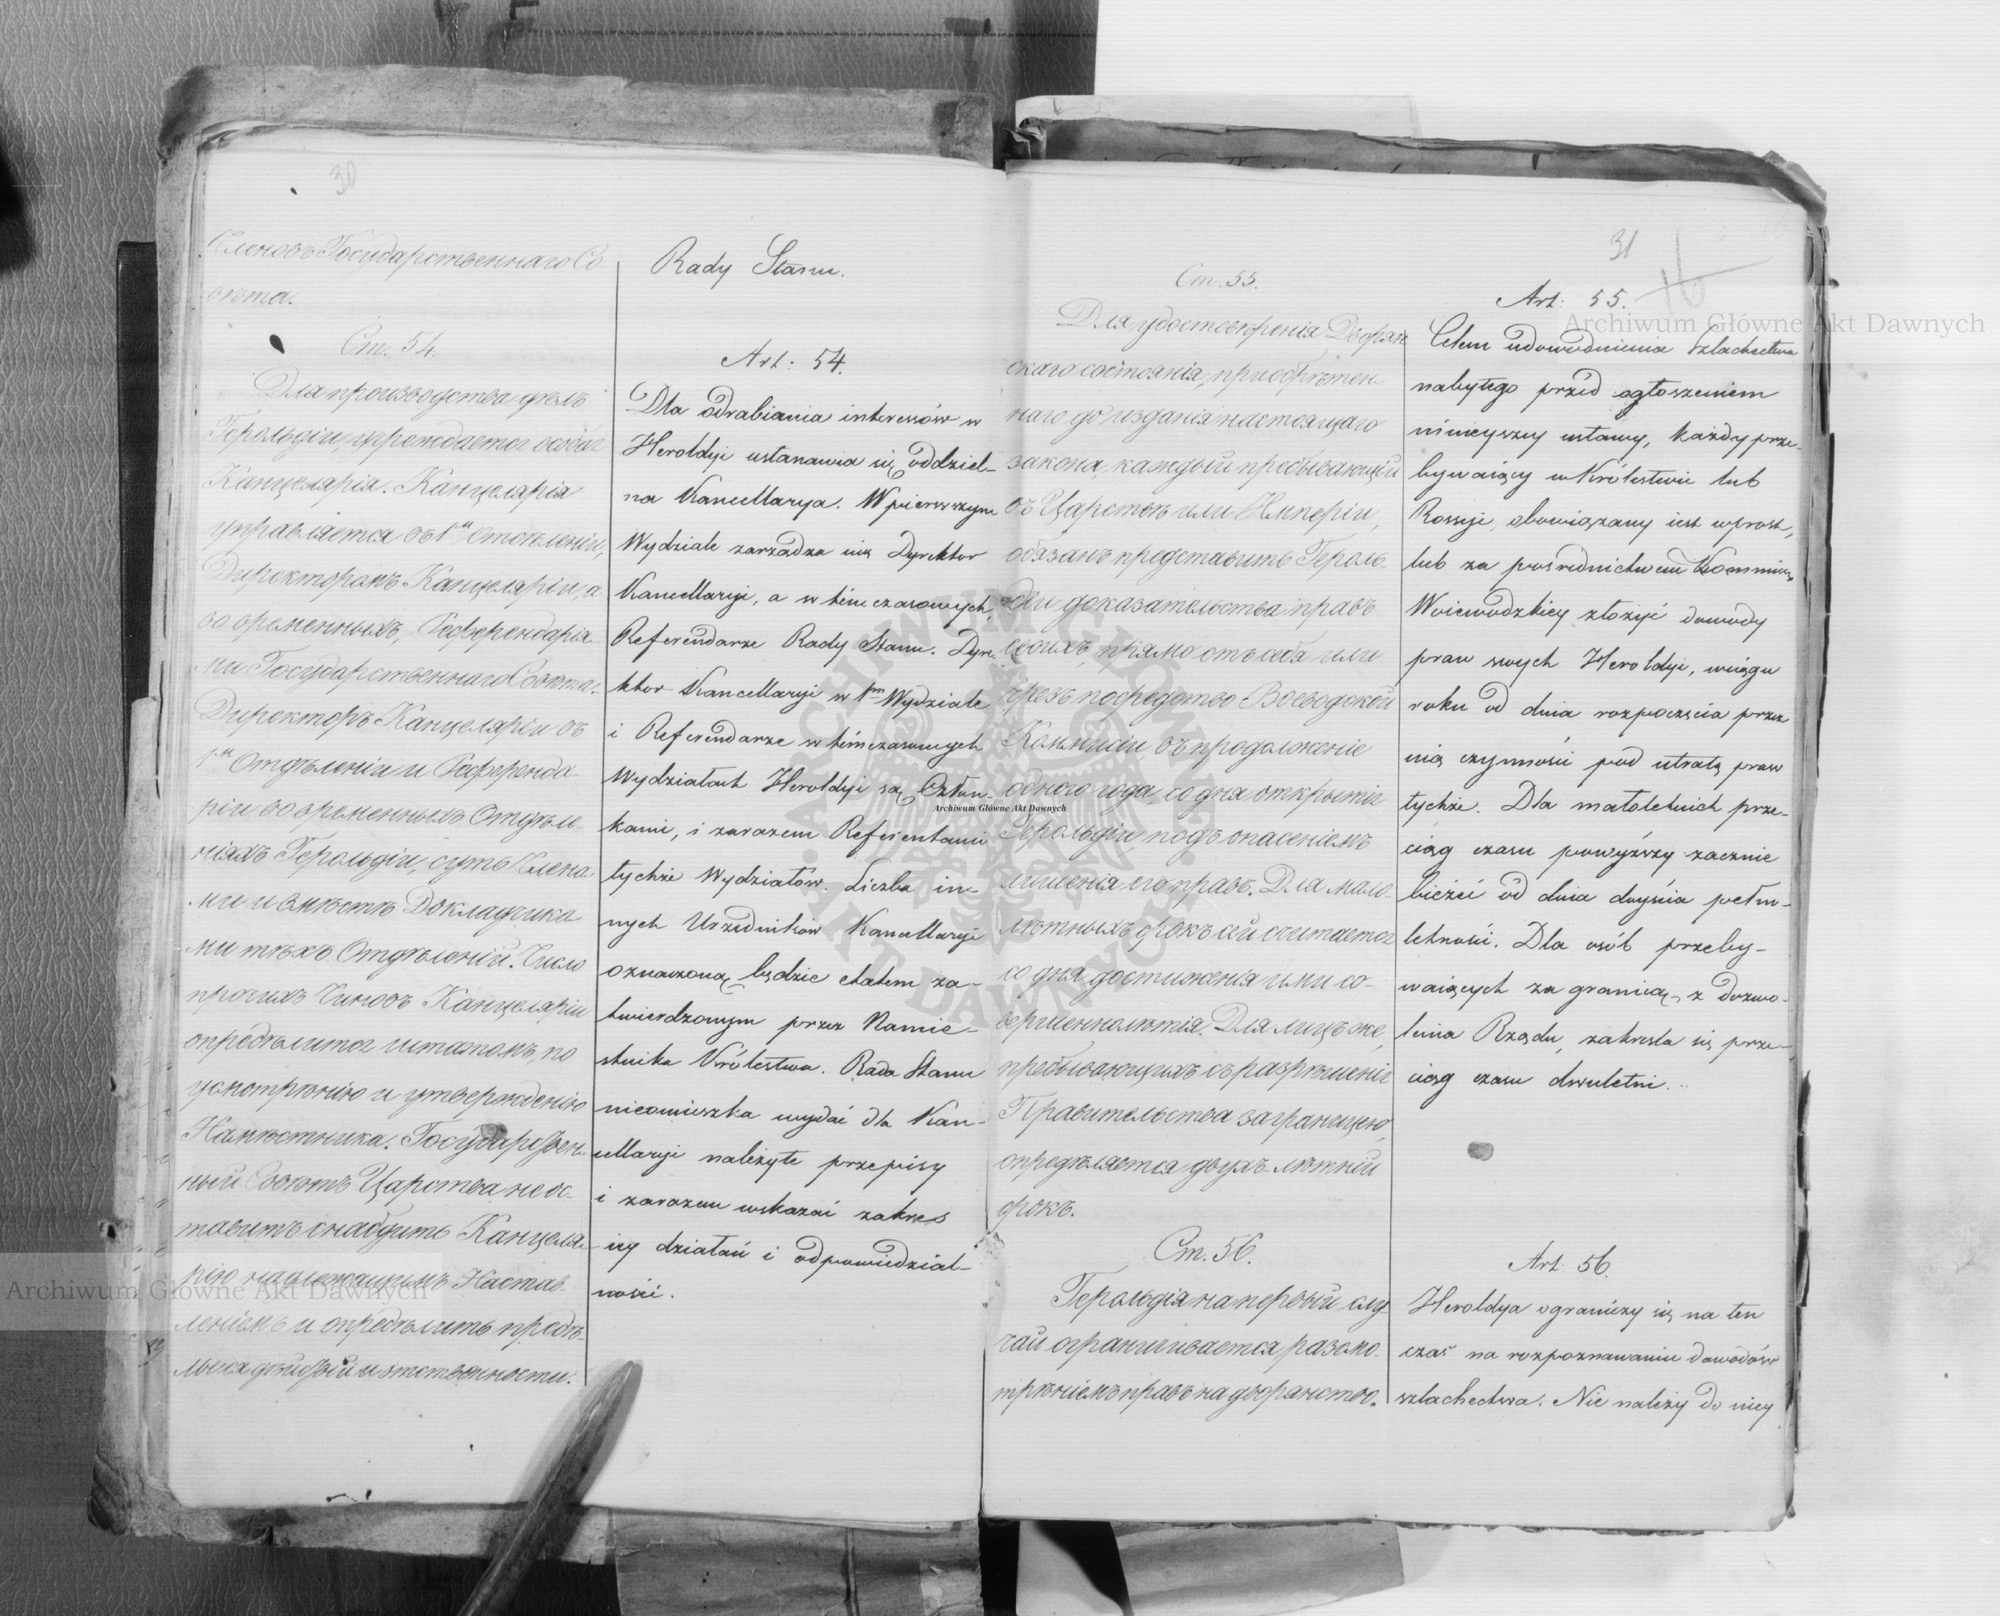 30
Членовъ Государственнаго Со
вѣта.
Ст. 54.
Для производства дѣлъ
Герольдіи, учреждается особая
Канцелярія. Канцелярія
управляется въ 1мъ Отдѣленіи,
Директоромъ Канцеляріи, а
во временныхъ, Референдарія-
ми Государственнаго Совѣта.
Директоръ Канцеляріи въ
1мъ Отдѣленіи и Референда-
ріи во временныхъ Отдѣле-
ніяхъ Герольдіи, суть Члена
ми и вмѣстѣ Докладчика
ми тѣхъ Отдѣленій. Число
прочихъ Чиновъ Канцеляріи
опредѣлится штатомъ, по
усмотрѣнію и утвержденію
Намѣстника. Государствен
ный Совѣтъ Царства не ос-
тавитъ снабдить Канцеля-
рію надлежащимъ Настав-
леніемъ и опредѣлить предѣ-
лы ея дѣйствій и отвѣтственности.
Rady Stanu.
Art: 54.
Dla odrabiania interessów w
Heroldyi ustanawia się oddziel-
na Kancellarya. W pierwszym
Wydziale zarządza nią Dyrektor
Kancellaryi, a w témczasowych,
Referendarze Rady Stanu. Dyre-
ktor Kancellaryi w 1m Wydziale
i Referendarze w témczasowych
Wydziałach Heroldyi są Człon-
kami, i zarazem Referentami
tychże Wydziałów. Liczba in-
nych Urzędników Kancellaryi
oznaczoną będzie etatem za-
twierdzonym przez Namie-
stnika Królestwa. Rada Stanu
nieomieszka wydać dla Kan-
cellaryi należyte przepisy
i zarazem wskazać zakres
iey działań i odpowiedzial-
ności.
31
16
Ст. 55.
Для удостовѣренія Дворян
скаго состоянія, пріобрѣтен-
наго до изданія настоящаго
закона, каждый пребывающій
въ Царствѣ или Имперіи,
обязанъ представить Героль-
діи доказательства правъ
своихъ, прямо отъ себя или
чрезъ посредство Воеводской
Коммисіи, въ продолженіе
одного года, со дня открытія
Герольдіи, подъ опасеніемъ
лишенія его правъ. Для мало-
лѣтныхъ срокъ сей считается
со дня достиженія ими со-
вершеннолѣтія. Для лицъ же,
пребывающихъ съ разрѣшенія
Правительства заграницею,
опредѣляется двухъ-лѣтній
срокъ.
Ст. 56.
Герольдія на первый слу
чай ограничивается разсмо-
трѣніемъ правъ на дворянство.
Art: 55.
Celem udowodnienia Szlachectwa
nabytego przéd ogłoszeniem
ninieyszey ustawy, każdy prze-
bywaiący w Królestwie lub
Rossyi, obowiązany iest wprost,
lub za pośrednictwem Kommissyi
Woiewodzkiey złożyć dowody
praw swych Heroldyi, wciągu
roku od dnia rozpoczęcia przez
nią czynności pod utratą praw
tychże. Dla małoletnich prze-
ciąg czasu powyższy zacznie
bieżéć od dnia doyścia pełno-
letności. Dla osób przeby-
waiących za granicą, z dozwo-
lenia Rządu, zakreśla się prze-
ciąg czasu dwuletni.
Art. 56.
Heroldya ograniczy się na ten
czas na rozpoznawaniu dowodów
szlachectwa. Nie należy do niey
Archiwum Główne Akt Dawnych
Archiwum Główne Akt Dawnych
Archiwum Główne Akt Dawnych
ARCHIWUM GŁÓWNE AKT DAWNYCH